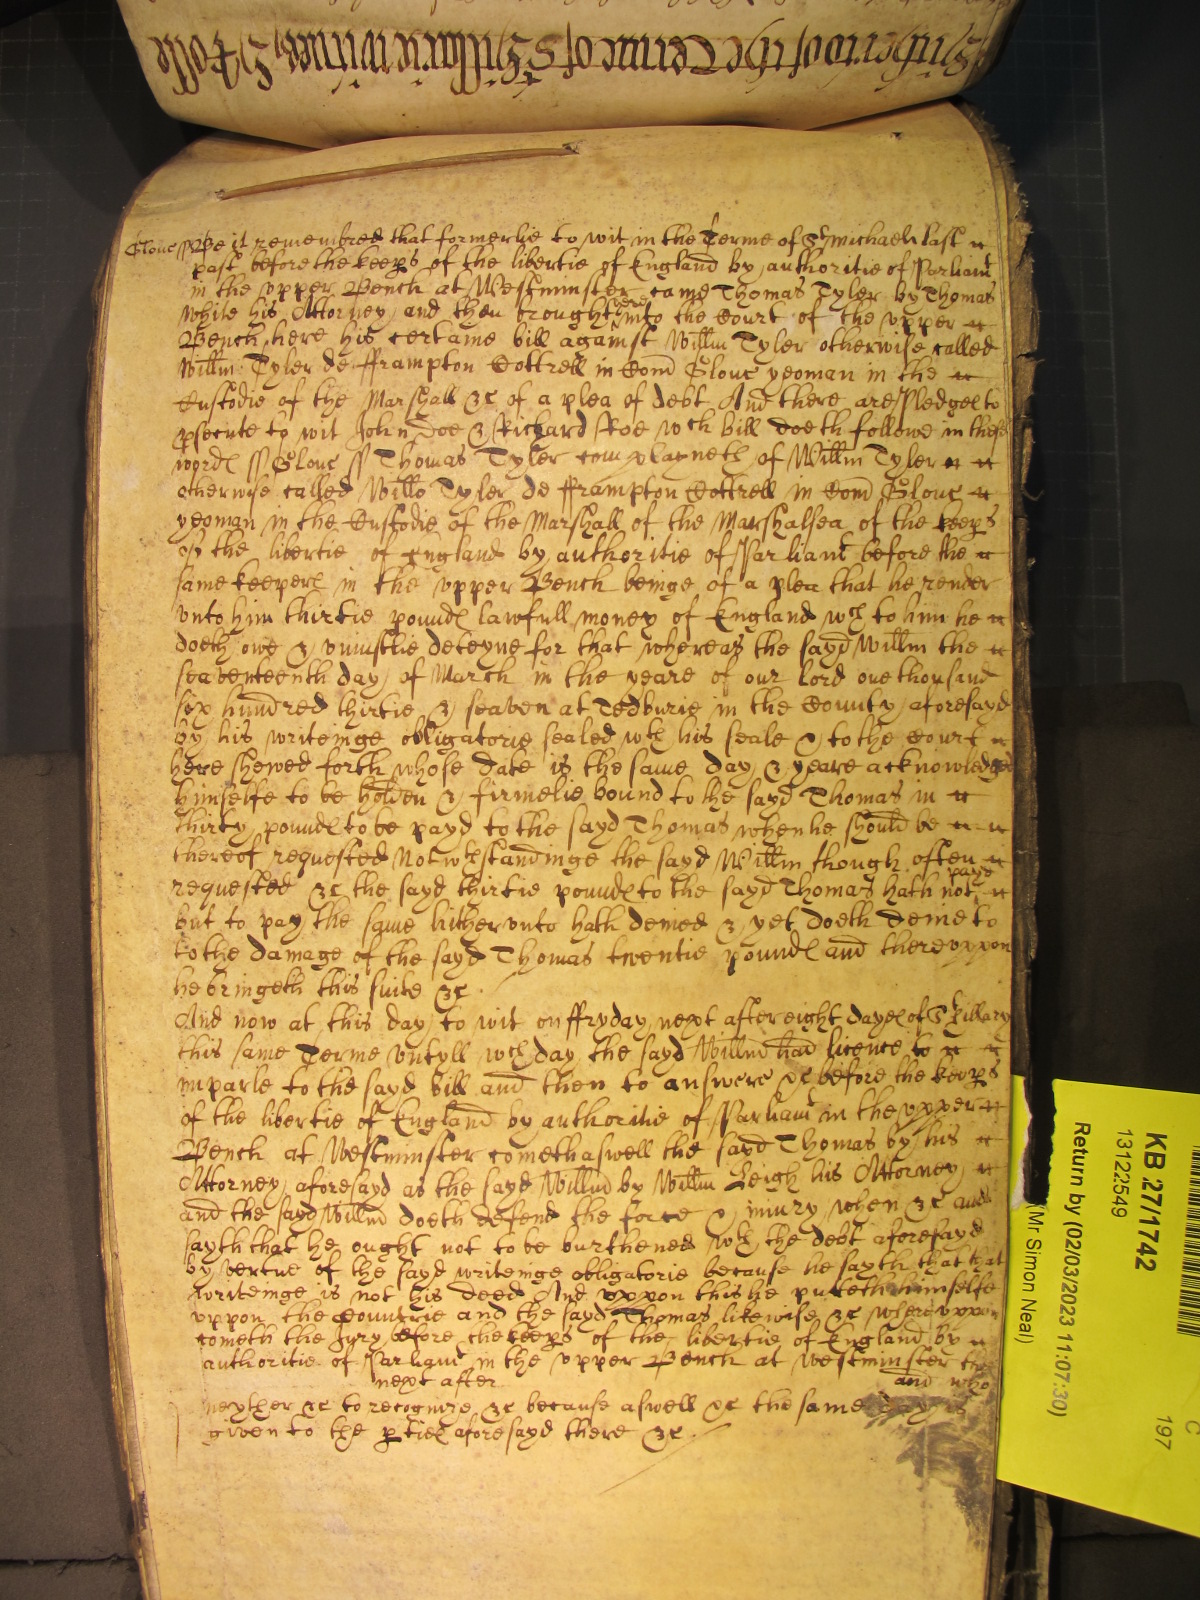 Glouc ss Be it remembred that formerlie to wit in the Terme of St Michaell last
past before the keeps of the libertie of England by authoritie of Parliamt
in the vpper Bench at Westminster came Thomas Tyler by Thomas
White his Attorney and then brought here into the Court of the vpper
Bench here his certaine bill against Willm Tyler otherwise called
Willm Tyler de Frampton Cottrell in Com Glouc yeoman in the
Custodie of the Marshall &c of a plea of debt And there are Pledges to
psecute to wit John Doe & Richard Roe wch bill doeth followe in these
words ss Glouc ss Thomas Tyler complayneth of Willm Tyler
otherwise called Willm Tyler de Frampton Cottrell in Com Glouc
yeoman in the Custodie of the Marshall of the Marshalsea of the keeps
of the libertie of England by authoritie of Parliamt before the
same keepers in the vpper Bench beinge of a plea that he render
vnto him thirtie pounds lawfull money of England wch to him he
doeth owe & vniustlie deteyne for that whereas the sayd Willm the
seaventeenth day of March in the yeare of our lord one thousand
six hundred thirtie & seaven at Tedburie in the County aforesayd
by his writeinge obligatorie sealed wth his seale & to the Court
here shewed forth whose date is the same day & yeare acknowledged
himselfe to be holden & firmelie bound to the sayd Thomas in
thirty pounds to be payd to the sayd Thomas when he should be
thereof requested Notwthstandinge the sayd Willm though often
requested &c the sayd thirtie pounds to the sayd Thomas hath not payd
but to pay the same hithervnto hath denied & yet doeth denie to
to the damage of the sayd Thomas twentie pounds and therevppon
he bringeth this suite &c
And now at this day to wit on Fryday next after eight dayes of St Hillary
this same Terme vntyll wch day the sayd Willm had licence to
imparle to the sayd bill and then to answere &c before the keeps
of the libertie of England by authoritie of Parliamt in the vpper
Bench at Westminster cometh aswell the sayd Thomas by his
Attorney aforesayd as the sayd Willm by Willm Leigh his Attorney
and the sayd Willm doeth defend the force & iniury when &c and
sayth that he ought not to be burthened wth the debt aforesayd
by vertue of the sayd writeinge obligatorie because he sayth that that
writeinge is not his deed And vppon this he putteth himselfe
vppon the Countrie and the sayd Thomas likewise &c wherevppon
cometh the Jury before the keeps of the libertie of England by
authoritie of Parliamt in the vpper Bench at Westminster
next after and who
neyther &c to recognize &c because aswell &c the same day is
given to the pties aforesayd there &c
KB 27/1742
13122549
Return by (02/03/2023 11:07:30)
(Mr Simon Neal)
C
197